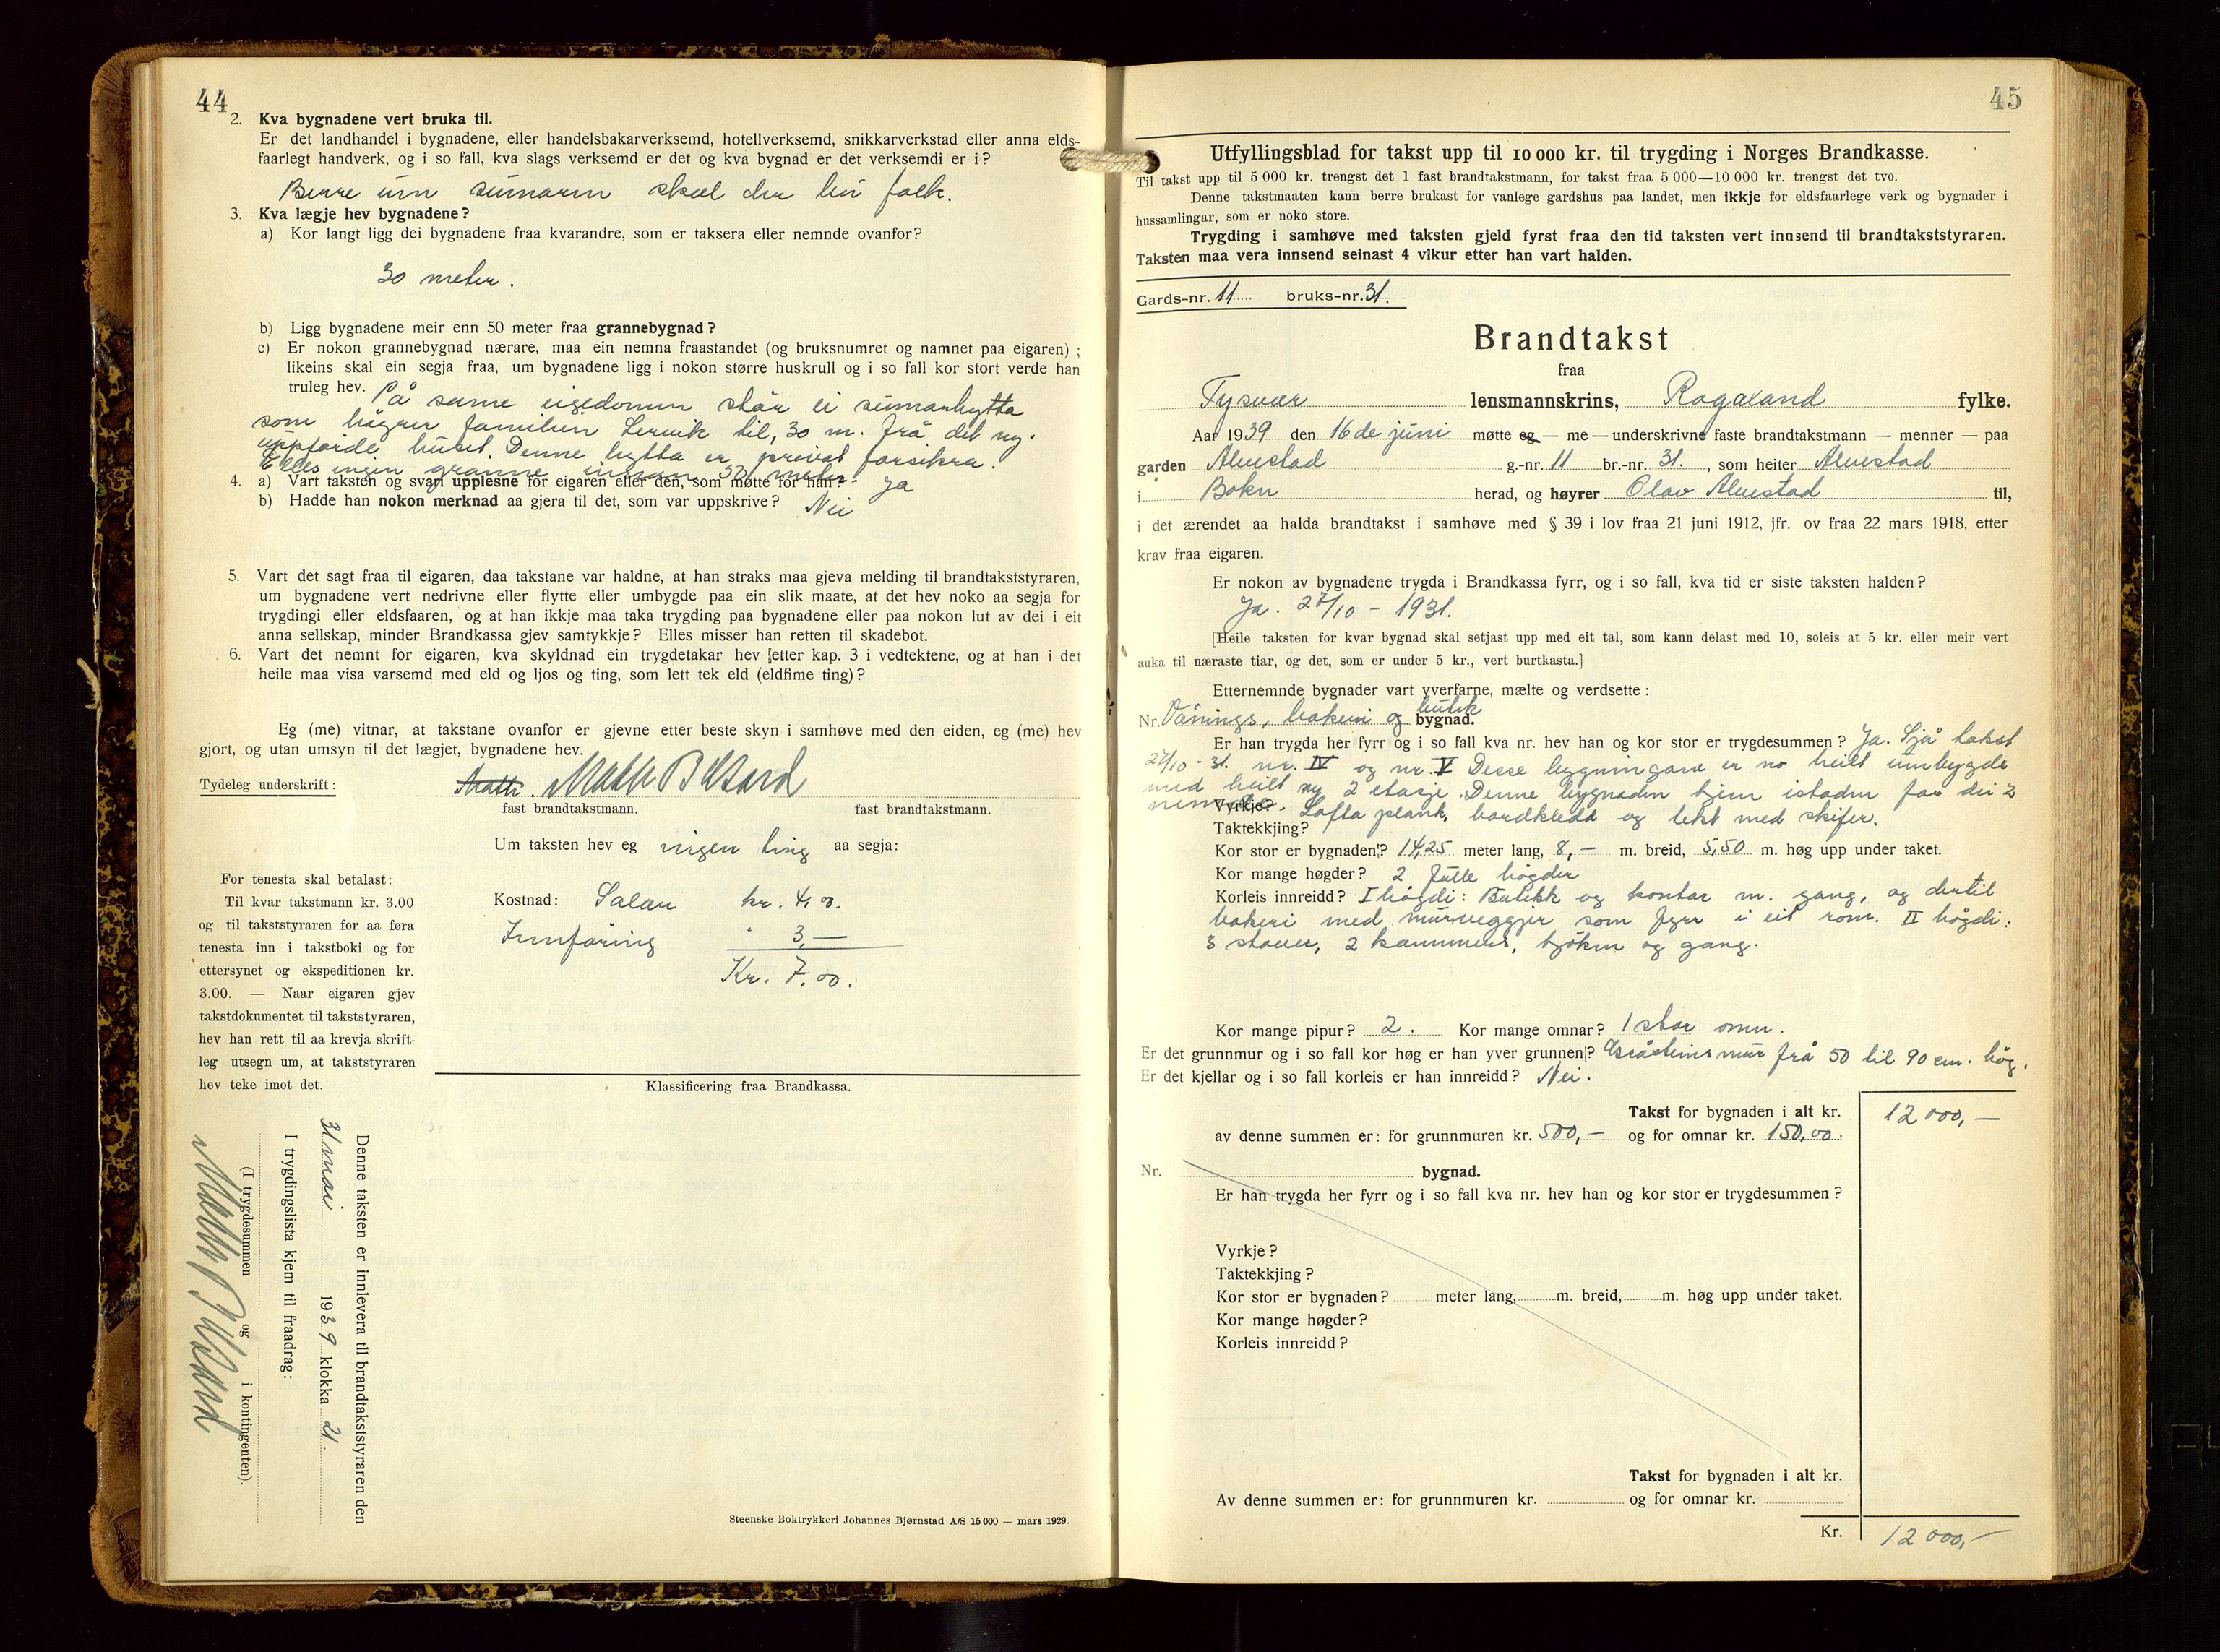 44
2. Kva bygnadene vert bruka til.
Er det landhandel i bygnadene, eller handelsbakarverksemd, hotellverksemd, snikkarverkstad eller anna elds-
faarlegt handverk, og i so fall, kva slags verksemd er det og kva bygnad er det verksemdi er i?
Berre um sumarin skal der bu folk.
3. Kva lægje hev bygnadene?
a) Kor langt ligg dei bygnadene fraa kvarandre, som er taksera eller nemnde ovanfor?
30 meter.
b) Ligg bygnadene meir enn 50 meter fraa grannebygnad?
c) Er nokon grannebygnad nærare, maa ein nemna fraastandet (og bruksnumret og namnet paa eigaren);
likeins skal ein segja fraa, um bygnadene ligg i nokon større huskrull og i so fall kor stort verde han
truleg hev. På same eigedomen står ei sumarhytta
som høyrer familien Lervik til, 30 m. frå det ny-
uppførde huset. Denne hytta er privat forsikra.
Elles ingen granne innan 50 meter.
4. a) Vart taksten og svari upplesne for eigaren eller den, som møtte for han? Ja
b) Hadde han nokon merknad aa gjera til det, som var uppskrive? Nei
5. Vart det sagt fraa til eigaren, daa takstane var haldne, at han straks maa gjeva melding til brandtakststyraren,
um bygnadene vert nedrivne eller flytte eller umbygde paa ein slik maate, at det hev noko aa segja for
trygdingi eller eldsfaaren, og at han ikkje maa taka trygding paa bygnadene eller paa nokon lut av dei i eit
anna sellskap, minder Brandkassa gjev samtykkje? Elles misser han retten til skadebot.
6. Vart det nemnt for eigaren, kva skyldnad ein trygdetakar hev etter kap. 3 i vedtektene, og at han i det
heile maa visa varsemd med eld og ljos og ting, som lett tek eld (eldfime ting)?
Eg (me) vitnar, at takstane ovanfor er gjevne etter beste skyn i samhøve med den eiden, eg (me) hev
gjort, og utan umsyn til det lægjet, bygnadene hev.
Tydeleg underskrift: Math. Math B
fast brandtakstmann. fast brandtakstmann.
Um taksten hev eg ingen ting aa segja:
Kostnad: Salær kr. 4,00.
Innføring " 3,—
Kr. 7.00.
For tenesta skal betalast:
Til kvar takstmann kr. 3.00
og til takststyraren for aa føra
tenesta inn i takstboki og for
ettersynet og ekspeditionen kr.
3.00. — Naar eigaren gjev
takstdokumentet til takststyraren,
hev han rett til aa krevja skrift-
leg utsegn um, at takststyraren
hev teke imot det.
Klassificering fraa Brandkassa.
Denne taksten er innlevera til brandtakststyraren den
31 mai 1939 klokka 21.
I trygdingslista kjem til fraadrag:
(I trygdesummen og i kontingenten).
Math B
Steenske Boktrykkeri Johannes Bjørnstad A/S 15 000 — mars 1929.
45
Utfyllingsblad for takst upp til 10 000 kr. til trygding i Norges Brandkasse.
Til takst upp til 5 000 kr. trengst det 1 fast brandtakstmann, for takst fraa 5 000—10 000 kr. trengst det tvo.
Denne takstmaaten kann berre brukast for vanlege gardshus paa landet, men ikkje for eldsfaarlege verk og bygnader i
hussamlingar, som er noko store.
Trygding i samhøve med taksten gjeld fyrst fraa den tid taksten vert innsend til brandtakststyraren.
Taksten maa vera innsend seinast 4 vikur etter han vart halden.
Gards-nr. 11 bruks-nr. 31.
Brandtakst
fraa
Tysvær lensmannskrins, Rogaland fylke.
Aar 1939 den 16de juni møtte eg — me — underskrivne faste brandtakstmann — menner — paa
garden Alvestad g.-nr. 11 br.-nr. 31. , som heiter Alvestad
i Bokn herad, og høyrer Olav Alvestad til,
i det ærendet aa halda brandtakst i samhøve med § 39 i lov fraa 21 juni 1912, jfr. ov fraa 22 mars 1918, etter
krav fraa eigaren.
Er nokon av bygnadene trygda i Brandkassa fyrr, og i so fall, kva tid er siste taksten halden?
Ja. 27/10 - 1931.
[Heile taksten for kvar bygnad skal setjast upp med eit tal, som kann delast med 10, soleis at 5 kr. eller meir vert
auka til næraste tiar, og det, som er under 5 kr., vert burtkasta.]
Etternemnde bygnader vart yverfarne, mælte og verdsette:
Nr. Vånings, bakeri og butik bygnad.
Er han trygda her fyrr og i so fall kva nr. hev han og kor stor er trygdesummen? Ja. Sjå takst
27/10 - 31. nr. IV og nr. V Desse bygningane er no heilt umbygde
med heilt ny 2 etasje. Denne bygnaden kjem istaden for dei 2
nemnde. Vyrkje? Lafta plank, bordkledd og tekt med skifer.
Taktekkjing?
Kor stor er bygnaden? 14,25 meter lang, 8,— m. breid, 5,50 m. høg upp under taket.
Kor mange høgder? 2 fulle høgder
Korleis innreidd? I høgdi: Butikk og kontor m. gang, og dertil
bakeri med murveggjer som fyrr i eit rom. II høgdi:
3 stover, 2 kammers, kjøken og gang.
Kor mange pipur? 2. Kor mange omnar? 1 stor omn.
Er det grunnmur og i so fall kor høg er han yver grunnen? Gråsteins mur frå 50 til 90 cm. høg.
Er det kjellar og i so fall korleis er han innreidd? Nei.
Takst for bygnaden i alt kr. 12 000,—
av denne summen er: for grunnmuren kr. 500,— og for omnar kr. 150,00.
Nr. bygnad.
Er han trygda her fyrr og i so fall kva nr. hev han og kor stor er trygdesummen?
Vyrkje?
Taktekkjing?
Kor stor er bygnaden? meter lang, m. breid, m. høg upp under taket.
Kor mange høgder?
Korleis innreidd?
Takst for bygnaden i alt kr.
Av denne summen er: for grunnmuren kr. og for omnar kr.
Kr. 12 000,—